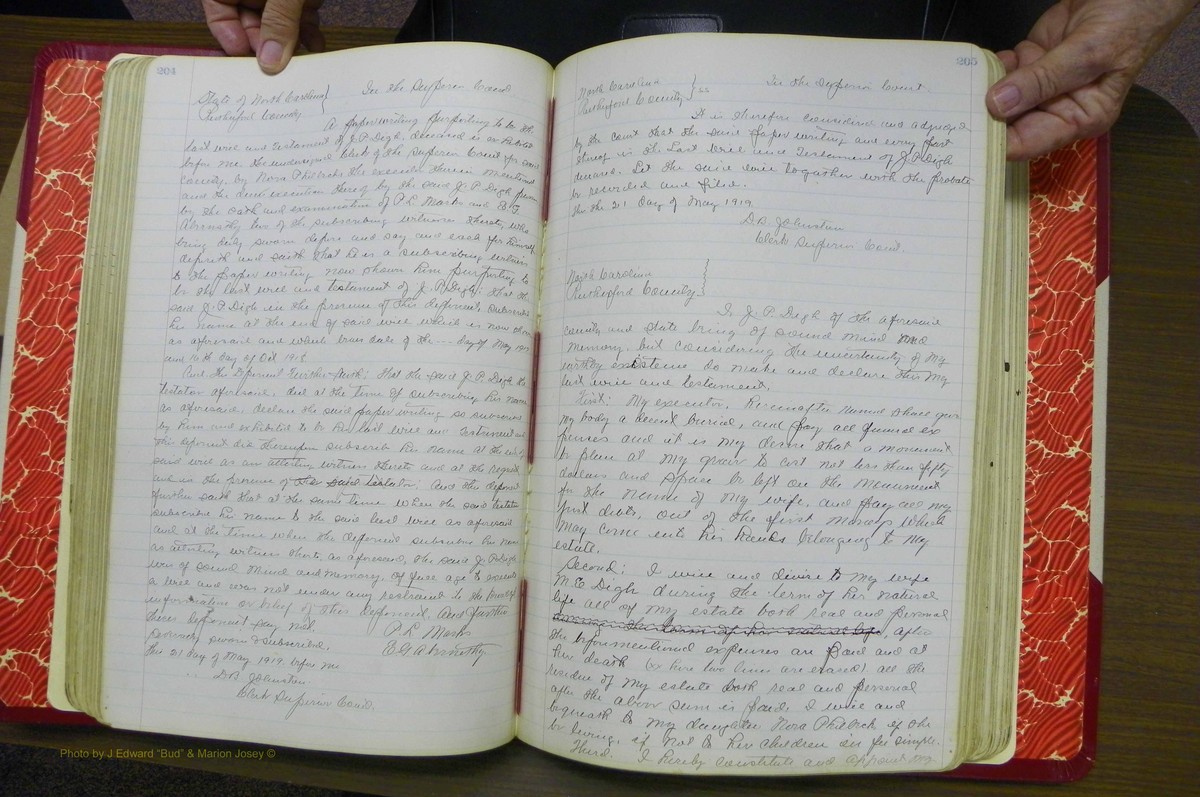 204
State of North Carolina }
Rutherford County
In the Superior Court
A paper writing purporting to be the
last will and testament of J. P. Digh, deceased is exhibited
before me, the undersigned Clerk of the Superior Court for said
county, by Nora Philbeck the executrix therein mentioned
and the due execution thereof by the said J. P. Digh, proven
by the oath and examination of P. L. Marks and E. G.
Abernethy two of the subscribing witnesses thereto, who
being duly sworn depose and say and each for himself
deposeth and saith that he is a subscribing witness
to the paper writing now shown him purporting to
be the last will and testament of J. P. Digh; that the
said J. P. Digh in the presence of this deponent, subscribed
his name at the end of said will which is now shown
as aforesaid and which bears date of the .... day of May
and 16th day of Oct
And the deponent further saith: That the said J. P. Digh the
testator aforesaid, did at the time of subscribing his name
as aforesaid, declare the said paper writing so subscribed
by him and exhibited to be his last will and testament and
this deponent did thereupon subscribe his name at the end of
said will as an attesting witness thereto and at the request
and in the presence of the said testator: And this deponent
further saith that at the same time when the said testator
subscribed his name to the said last will as aforesaid
and at the time when the deponent subscribed his name
as attesting witness thereto, as aforesaid, the said J. P. Digh
was of sound mind and memory, of full age to execute
a will and was not under any restraint to the
information or belief of this deponent. And further
these deponents say not.
P. L. Marks
E G Abernethy
Severally sworn & subscribed,
this 21 day of May 1919 before me
D B Johnston
Clerk Superior Court.
205
North Carolina }
Rutherford County } ss
In the Superior Court.
It is therefore considered and adjudged
by the court that the said paper writing and every part
thereof is the Last Will and Testament of J P Digh
deceased. Let the said will together with the probate
be recorded and filed.
This the 21 day of May 1919.
D B Johnston
Clerk Superior Court.
North Carolina }
Rutherford County
I J. P. Digh of the aforesaid
county and state being of sound mind and
memory, but considering the uncertainty of my
earthy existens do make and declare this my
last will and testament.
First: My executor, hereinafter named shall give
my body a decent buriel, and pay all funeral ex
penses and it is my desire that a monument
be place at my grave to cost not less than fifty
dollars and space be left on the monument
for the name of my wife, and pay all my
just debts, out of the first moneys which
may come into his hands belonging to my
estate.
Second: I will and devise to my wife
M. E. Digh during the term of her natural
life all of my estate both real and personal
during the term of her natural life, after
the aforementioned expenses are paid and at
her death (xx here two lines are erased) all the
residue of my estate both real and personal
after the above sum is paid, I will and
bequeath to my daughter Nora Philbeck if she
be living, if not to her children in fee simple.
Third. I hereby constitute and appoint my
Photo by J Edward "Bud" & Marion Josey ©